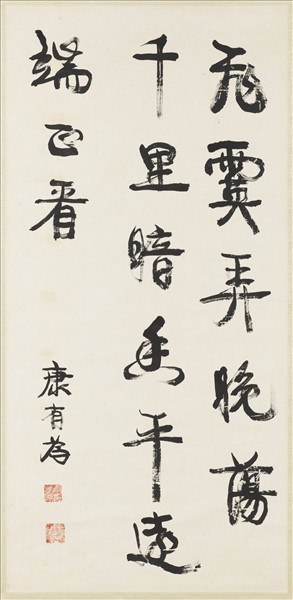 飛霙弄晚蕩
千里暗香平遠
端正看
康有為